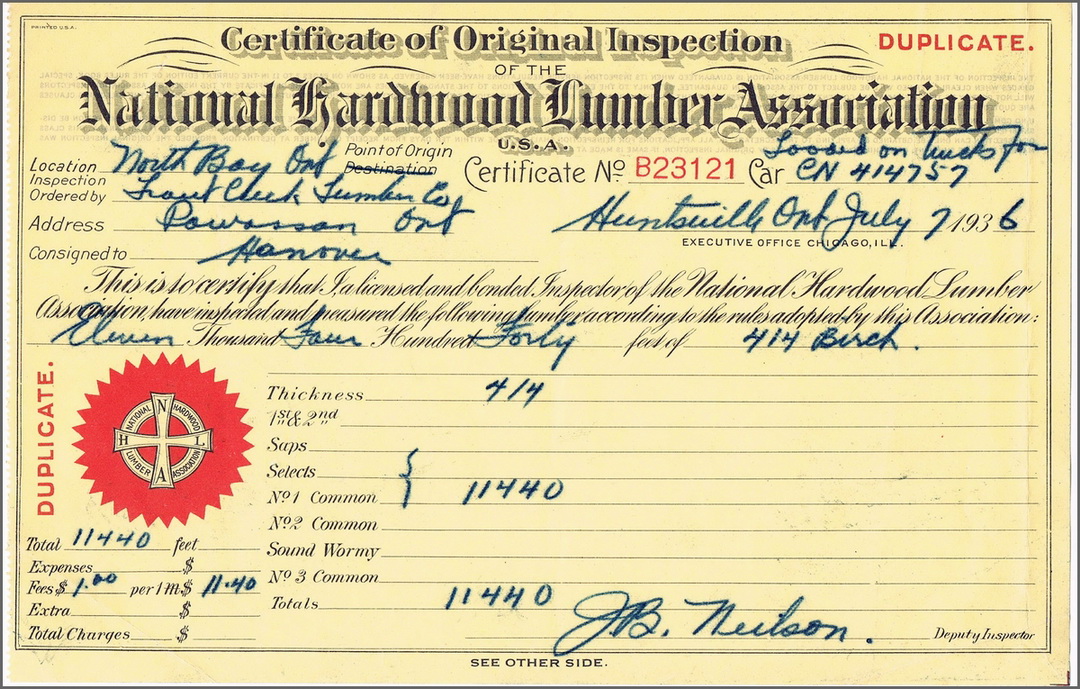 PRINTED U.S.A.
Certificate of Original Inspection
DUPLICATE.
OF THE
National Hardwood Lumber Association
U.S.A.
Loaded on trucks for
Location North Bay Ont Point of Origin
Destination
Certificate No B23121 Car CN 414757
Inspection
Ordered by Trout Creek Lumber Co
Address Powassan Ont
Huntsville Ont July 7 1936
EXECUTIVE OFFICE CHICAGO, ILL.
Consigned to Hanover
This is to certify that I, a licensed and bonded Inspector of the National Hardwood Lumber
Association, have inspected and measured the following lumber according to the rules adopted by this Association:
Eleven Thousand Four Hundred Forty feet of 4/4 Birch.
DUPLICATE.
NATIONAL HARDWOOD LUMBER ASSOCIATION
N H L A
Thickness 4/4
1st & 2nd
Saps
Selects
No 1 Common } 11440
No 2 Common
Sound Wormy
No 3 Common
Totals 11440
Total 11440 feet
Expenses $
Fees $ 1.00 per 1 M. $ 11.40
Extra $
Total Charges $
J.B. Neilson.
Deputy Inspector
SEE OTHER SIDE.